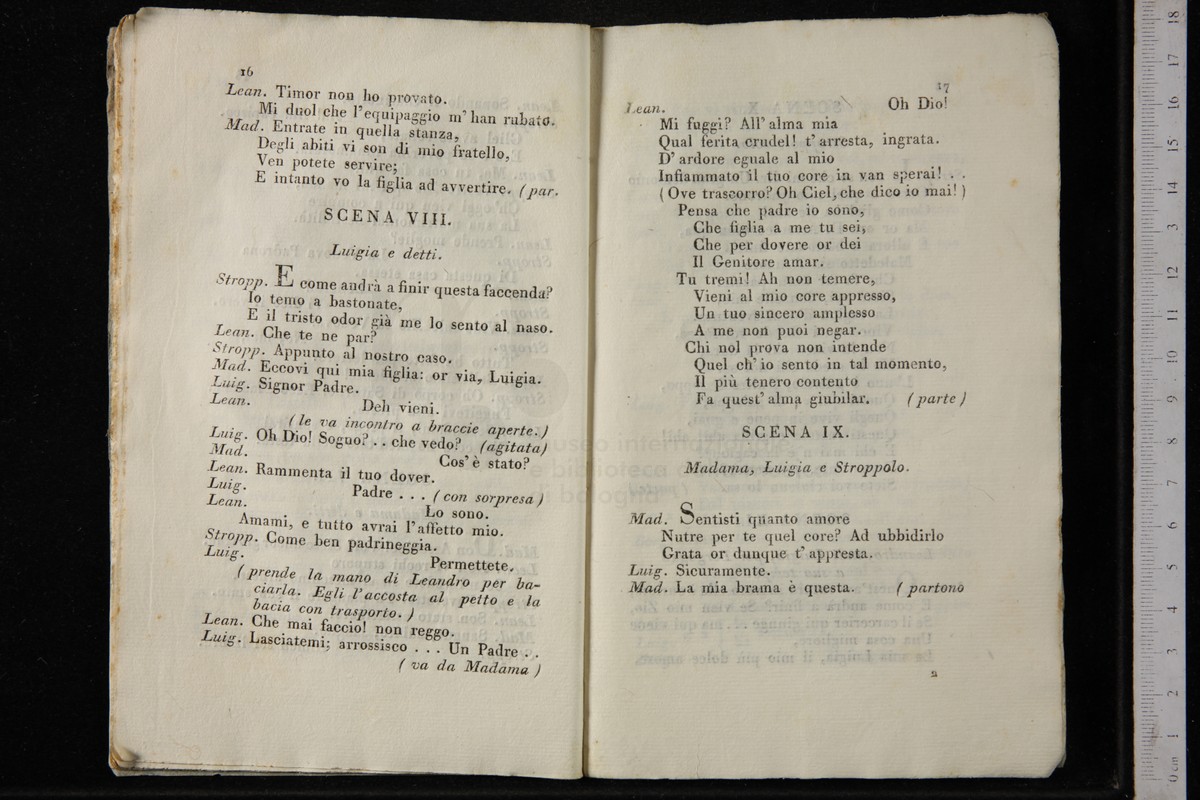 16
Lean. Timor non ho provato.
Mi duol che l'equipaggio m'han rubato.
Mad. Entrate in quella stanza,
Degli abiti vi son di mio fratello,
Ven potete servire;
E intanto vo la figlia ad avvertire. (par.
SCENA VIII.
Luigia e detti.
Stropp. E come andrà a finir questa faccenda?
Io temo a bastonate,
E il tristo odor già me lo sento al naso.
Lean. Che te ne par?
Stropp. Appunto al nostro caso.
Mad. Eccovi qui mia figlia: or via, Luigia.
Luig. Signor Padre.
Lean. Deh vieni.
(le va incontro a braccie aperte.)
Luig. Oh Dio! Sogno? . . che vedo? (agitata)
Mad. Cos'è stato?
Lean. Rammenta il tuo dover.
Luig. Padre . . . (con sorpresa)
Lean. Lo sono.
Amami, e tutto avrai l'affetto mio.
Stropp. Come ben padrineggia.
Luig. Permettete.
(prende la mano di Leandro per ba-
ciarla. Egli l'accosta al petto e la
bacia con trasporto.)
Lean. Che mai faccio! non reggo.
Luig. Lasciatemi; arrossisco . . . Un Padre . .
(va da Madama)
17
Lean. Oh Dio!
Mi fuggi? All'alma mia
Qual ferita crudel! t'arresta, ingrata.
D'ardore eguale al mio
Infiammato il tuo core in van sperai! . .
(Ove trascorro? Oh Ciel, che dico io mai!)
Pensa che padre io sono,
Che figlia a me tu sei,
Che per dovere or dei
Il Genitore amar.
Tu tremi! Ah non temere,
Vieni al mio core appresso,
Un tuo sincero amplesso
A me non puoi negar.
Chi nol prova non intende
Quel ch'io sento in tal momento,
Il più tenero contento
Fa quest'alma giubilar. (parte)
SCENA IX.
Madama, Luigia e Stroppolo.
Mad. Sentisti quanto amore
Nutre per te quel core? Ad ubbidirlo
Grata or dunque t'appresta.
Luig. Sicuramente.
Mad. La mia brama è questa. (partono
2